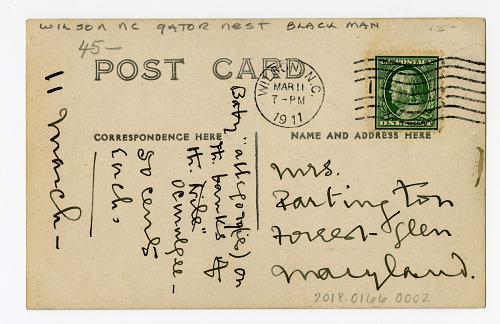 WILSON NC GATOR NEST BLACK MAN
45-
POST CARD
WILSON, N.C.
MAR 11
7-PM
1911
CORRESPONDENCE HERE
NAME AND ADDRESS HERE
11 March-
Baby "alligator(s) on
th. banks of
th. Nile"
Ocmulgee-
50 cents
Each.
Mrs.
Partington
Forest-Glen
Maryland.
2018.0166.0002